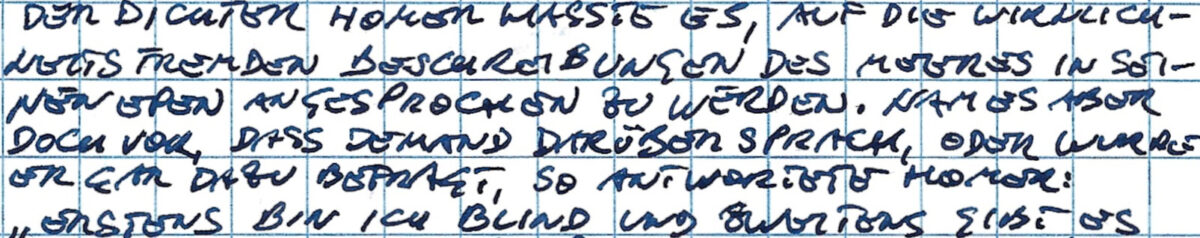 DER DICHTER HOMER HASSTE ES, AUF DIE WIRKLICH-
KEITSFREMDEN BESCHREIBUNGEN DES MEERES IN SEI-
NEN EPEN ANGESPROCHEN ZU WERDEN. KAM ES ABER
DOCH VOR, DASS JEMAND DARÜBER SPRACH, ODER WURDE
ER GAR DAZU BEFRAGT, SO ANTWORTETE HOMER:
„ERSTENS BIN ICH BLIND UND ZWEITENS GIBT ES